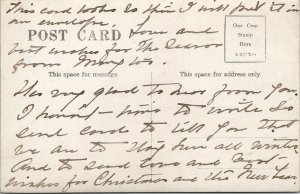 This card looks so thin I will put it in
an envelope. Love and
best wishes for the Season
from Mary
POST CARD
One Cent
Stamp
Here
This space for message
This space for address only
Was very glad to hear from you.
I haven't time to write so
send card to tell you that
we are to stay here all winter
And to send love and good
wishes for Christmas and the New Year